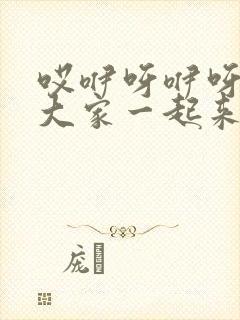 哎咿呀咿呀
大家一起来
庞